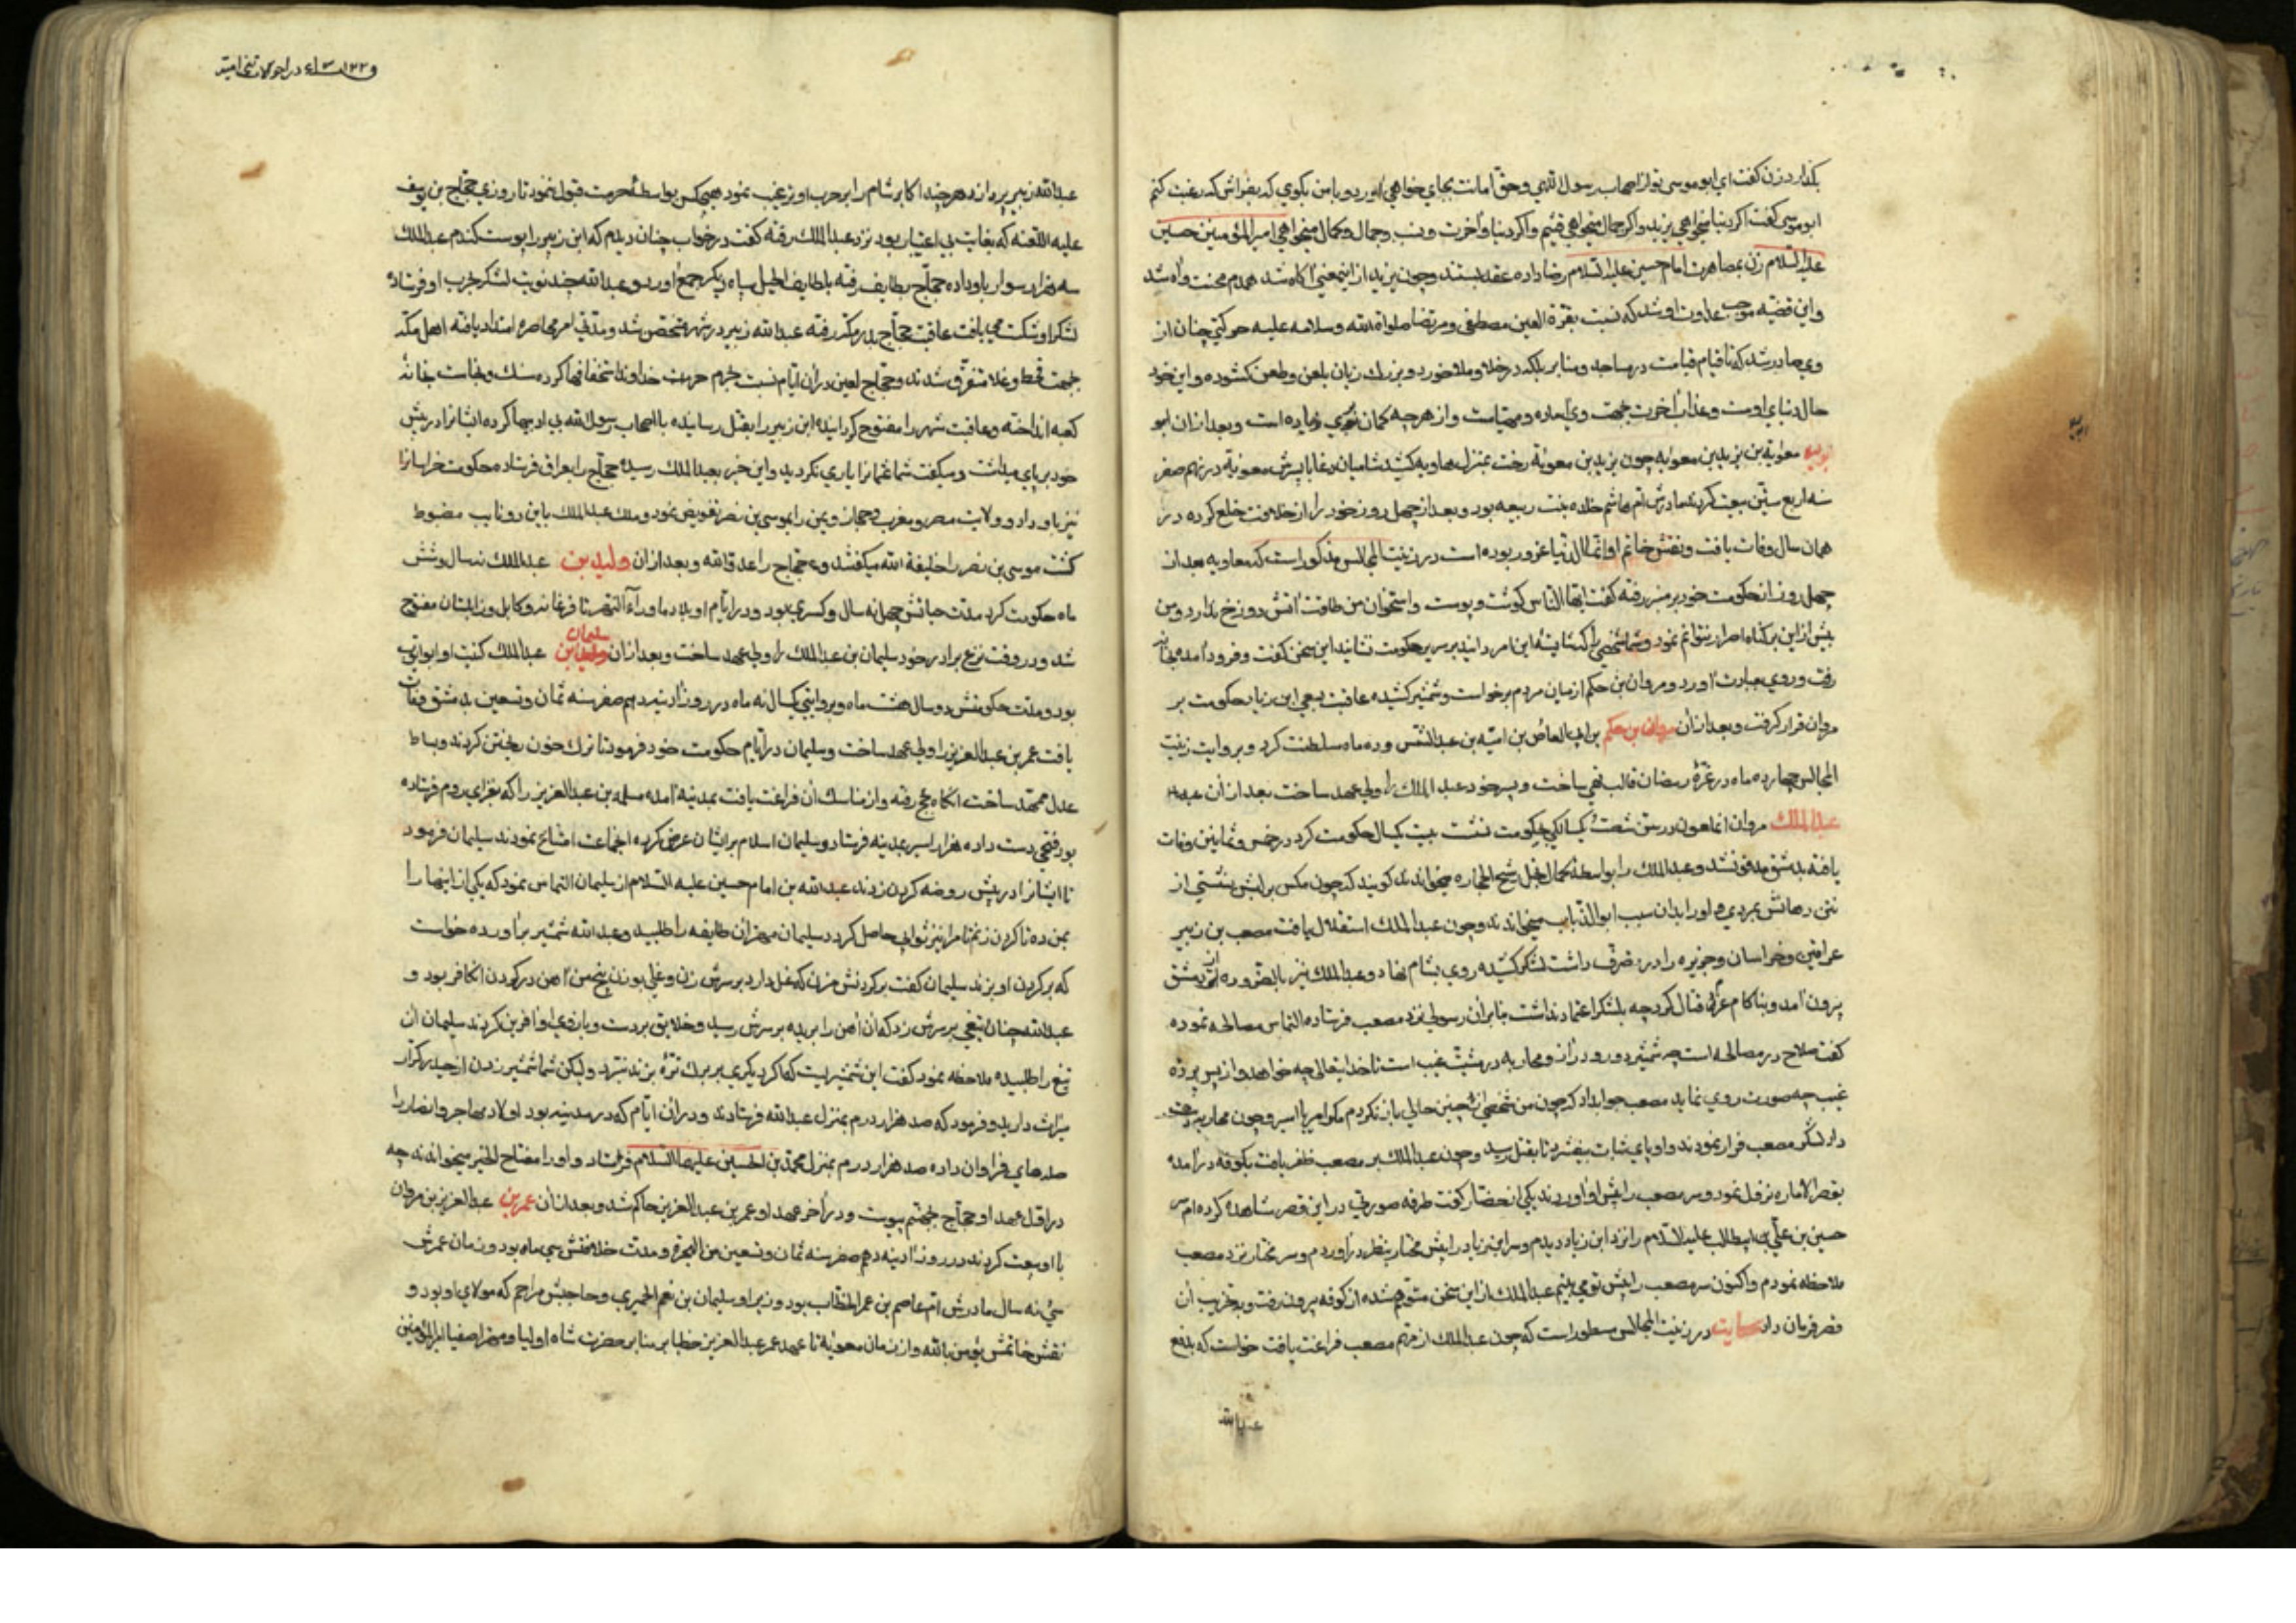 بکذارد زن کفت ای ابو موسی تو از اصحاب رسول اللهی وحق امانت بجای خواهی اورد و با من بکوی که بفراش که رغبت کنم
ابو موسی کفت اکر دنیا میخواهی یزید و اکر جمال میخواهی قثم و اکر دنیا و آخرت ونسب وجمال وکمال میخواهی امیر المؤمنین حسین
علیه السلام زن بمصاهرت امام حسین علیه السلام رضا داده عقد بستند وچون یزید از اینمعنی آکاه شد همدم محنت واه شد
واین قضیه موجب عداوت او شد که نسبت بقرة العین مصطفی ومرتضا صلواة الله وسلامه علیه حرکتی چنان از
وی صادر شد که تا قیام قیامت در مساجد ومنابر بلکه در خلا وملا خورد وبزرك زبان بلعن وطعن کشوده واین خود
حال دنیای اوست وعذاب آخرت جهت وی آماده ومهیاست واز هرچه کمان بری زیاده است وبعد ازان ابو
معویة بن یزید بن معویه چون یزید بن معویة رخت بمنزل هاویه کشید شامیان دغا با پسرش معویة در نهم صفر
سنه اربع ستین بیعت کردند مادرش ام هاشم خلاده بنت ربیعه بود وبعد از چهل روز خود را از خلافت خلع کرده در
همان سال وفات یافت ونقش خاتم او انما الدنیا غرور بوده است در زینت المجالس مذکور است که معاویه بعد از
چهل روز از حکومت خود بر منبر رفته کفت ایها الناس کوشت وپوست واستخوان من طاقت آتش دوزخ ندارد ومن
بیش از این بر کناه اصرار نتوانم نمود وشما شخصی را که شایسته این امر دانید بر سریر حکومت نشانید این سخن کفت وفرود آمده بخانه
رفت وروی بعبادت آورد ومروان بن حکم از میان مردم برخواست وشمشیر کشیده عاقبت بسعی ابن زیاد حکومت بر
مروان قرار کرفت وبعد ازان مروان بن حکم بن ابی العاص بن امیه بن عبد الشمس وده ماه سلطنت کرد وبروایت زینت
المجالس چهارده ماه در غرّۀ رمضان قالب تهی ساخت وپسر خود عبد الملك را ولیعهد ساخت بعد از آن عبد
عبد الملك مروان انملعون در سن شصت ویکسالکی بحکومت نشست بیست یکسال حکومت کرد در خمس وثمانین وفات
یافته بدمشق مدفون شد وعبد الملك را بواسطه کمال بخل رشح الحجاره میخواندند کویند که چون مکس بر لبش نشستی از
نتن دهانش بمردی واورا بدان سبب ابو الذباب میخواندند وچون عبد الملك استقلال یافت مصعب بن زبیر
عراقین وخراسان وجزیره را در تصرف داشت لشکر کشیده روی بشام نهاد وعبد الملك نیز بالضروره از دمشق
بیرون آمد وبناکام عزم قتال کرد چه بلشکر اعتماد نداشت بنابر آن رسولی نزد مصعب فرستاده التماس مصالحه نموده
کفت صلاح در مصالحه است چه شمشیر دو رو دارد ومحاربه در مشیت غیب است تا خدایتعالی چه خواهد واز پس پرده
غیب چه صورت روی نماید مصعب جواب داد که چون من شخصی از چنین حالی باز نکردم مکر امیر یا اسیر وچون محاربه
داد لشکر مصعب فرار نمودند واو پای ثبات بیفشرد تا بقتل رسید وچون عبد الملك بر مصعب ظفر یافت بکوفه درآمده
بقصر الاماره نزول نمود وسر مصعب را پیش او اوردند یکی از حضار کفت طرفه صورتی در این قصر مشاهده کرده ام سر
حسین بن علی بن ابیطالب علیه السلام را نزد ابن زیاد دیدم وسر ابن زیاد را پیش مختار بنظر درآوردم وسر مختار نزد مصعب
ملاحظه نمودم واکنون سر مصعب را پیش تو می بینم عبد الملك از این سخن متوهم شده از کوفه بیرون رفت وبتخریب آن
قصر فرمان داد حکایت در زینت المجالس مسطور است که چون عبد الملك از مهم مصعب فراغت یافت خواست که بدفع
عبد الله
در احوالات بنی امیه
عبد الله زبیر پردازد هرچند اکابر شام را بر حرب او ترغیب نمود هیچکس بواسطۀ حرمت قبول ننمود تا روزی حجاج بن یوسف
علیه اللعنه که بغایت بی اعتبار بود نزد عبد الملك رفته کفت در خواب چنان دیدم که ابن زبیر را پوست کندم عبد الملك
سه هزار سوار باو داده حجاج بطایف رفته بلطایف الحیل سپاه دیکر جمع اورد وعبد الله چند نوبت لشکر بحرب او فرستاده
لشکر او شکست می یافت عاقبت حجاج بدر مکه رفته عبد الله زبیر در شهر متحصن شد ومدتی امر محاصره امتداد یافته اهل مکه
بجهت قحط وغلا متفرق شدند وحجاج لعین در آن ایام نسبت بحرم حرمت خداوند استخفافها کرده سنك ونجاست بخانه
کعبه انداخته وعاقبت شهر را مفتوح کردانیده ابن زبیر را بقتل رسانیده با اصحاب رسول الله بی ادبیها کرده ایشانرا در پیش
خود بر پای میداشت ومیکفت شما عثمانرا یاری نکردید واین خبر بعبد الملك رسیده حجاج را بعراق فرستاده حکومت خراسانرا
نیز باو داد وولایت مصر ومغرب وحجاز ویمن را بموسی بن نصر تفویض نمود وملك عبد الملك باین دو نایب مضبوط
کشت موسی بن نصر را خلیفة الله میکفتند وحجاج را عدو الله وبعد ازان ولید بن عبد الملك نه سال وشش
ماه حکومت کرد مدت حیاتش چهل نه سال وکسری بود ودر ایام او بلاد ماورآء النهر تا فرغانه وکابل وزابلستان مفتوح
شد ودر وقت نزع برادر خود سلیمان بن عبد الملك را ولیعهد ساخت وبعد ازان سلیمان بن عبد الملك کنیت او ابو ایوب
بود ومدت حکومتش دو سال هشت ماه وبروایتی یکسال نه ماه در روز آدینه دهم صفر سنه ثمان وتسعین بدمشق وفات
یافت عمر بن عبد العزیز را ولیعهد ساخت وسلیمان در ایام حکومت خود فرمود تا ترك خون ریختن کردند وبساط
عدل ممهد ساخت آنکاه بحج رفته واز مناسك آن فراغت یافت بمدینه آمده مسلمه بن عبد العزیز را که بغزای روم فرستاده
بود فتحی دست داده هزار اسیر بمدینه فرستاد وسلیمان اسلام بر ایشان عرض کرده انجماعت امتناع نمودند سلیمان فرمود
تا ایشانرا در پیش روضه کردن زدند عبد الله بن امام حسین علیه السلام از سلیمان التماس نمود که یکی از اینها را
بمن ده تا کردن زنم تا مرا نیز ثوابی حاصل کردد سلیمان مهتر آن طایفه را طلبید وعبد الله شمشیر برآورده خواست
که بر کردن او بزند سلیمان کفت بر کردنش مزن که غل دارد بر سرش زن وغلی بوزن پنج من آهن در کردن آنکافر بود و
عبد الله چنان تیغی بر سرش زد که آن آهن را بریده بر سرش رسید وخلایق بر دست وبازوی او آفرین کردند سلیمان آن
تیغ را طلبیده ملاحظه نمود کفت این شمشیریست که اکر دیکری بر برك ترّه بزند نبرد ولیکن شما شمشیر زدن از حیدر کرّار
میراث دارید وفرمود که صد هزار درم بمنزل عبد الله فرستادند ودر ان ایام که در مدینه بود اولاد مهاجر وانصار را
صلهای فراوان داده صد هزار درم بمنزل محمد بن الحسین علیهما السلام فرستاد واورا مفتاح الخیر میخواندند چه
در اول عهد او حجاج بجهنم پیوست ودر آخر عهد او عمر بن عبد العزیز حاکم شد وبعد ازان عمر بن عبد العزیز بن مروان
با او بیعت کردند در روز آدینه دهم صفر سنه ثمان وتسعین من الهجرة ومدت خلافتش سی ماه بود وزمان عمرش
سی نه سال مادرش ام عاصم بن عمر الخطاب بود وزیر او سلیمان بن نعیم الحمیری وحاجبش مراحم که مولای او بود و
نقش خاتمش یؤمن بالله واز زمان معویة تا عهد عمر عبد العزیز خطبا بر منابر حضرت شاه اولیا ومهتر اصفیا امیر المؤمنین